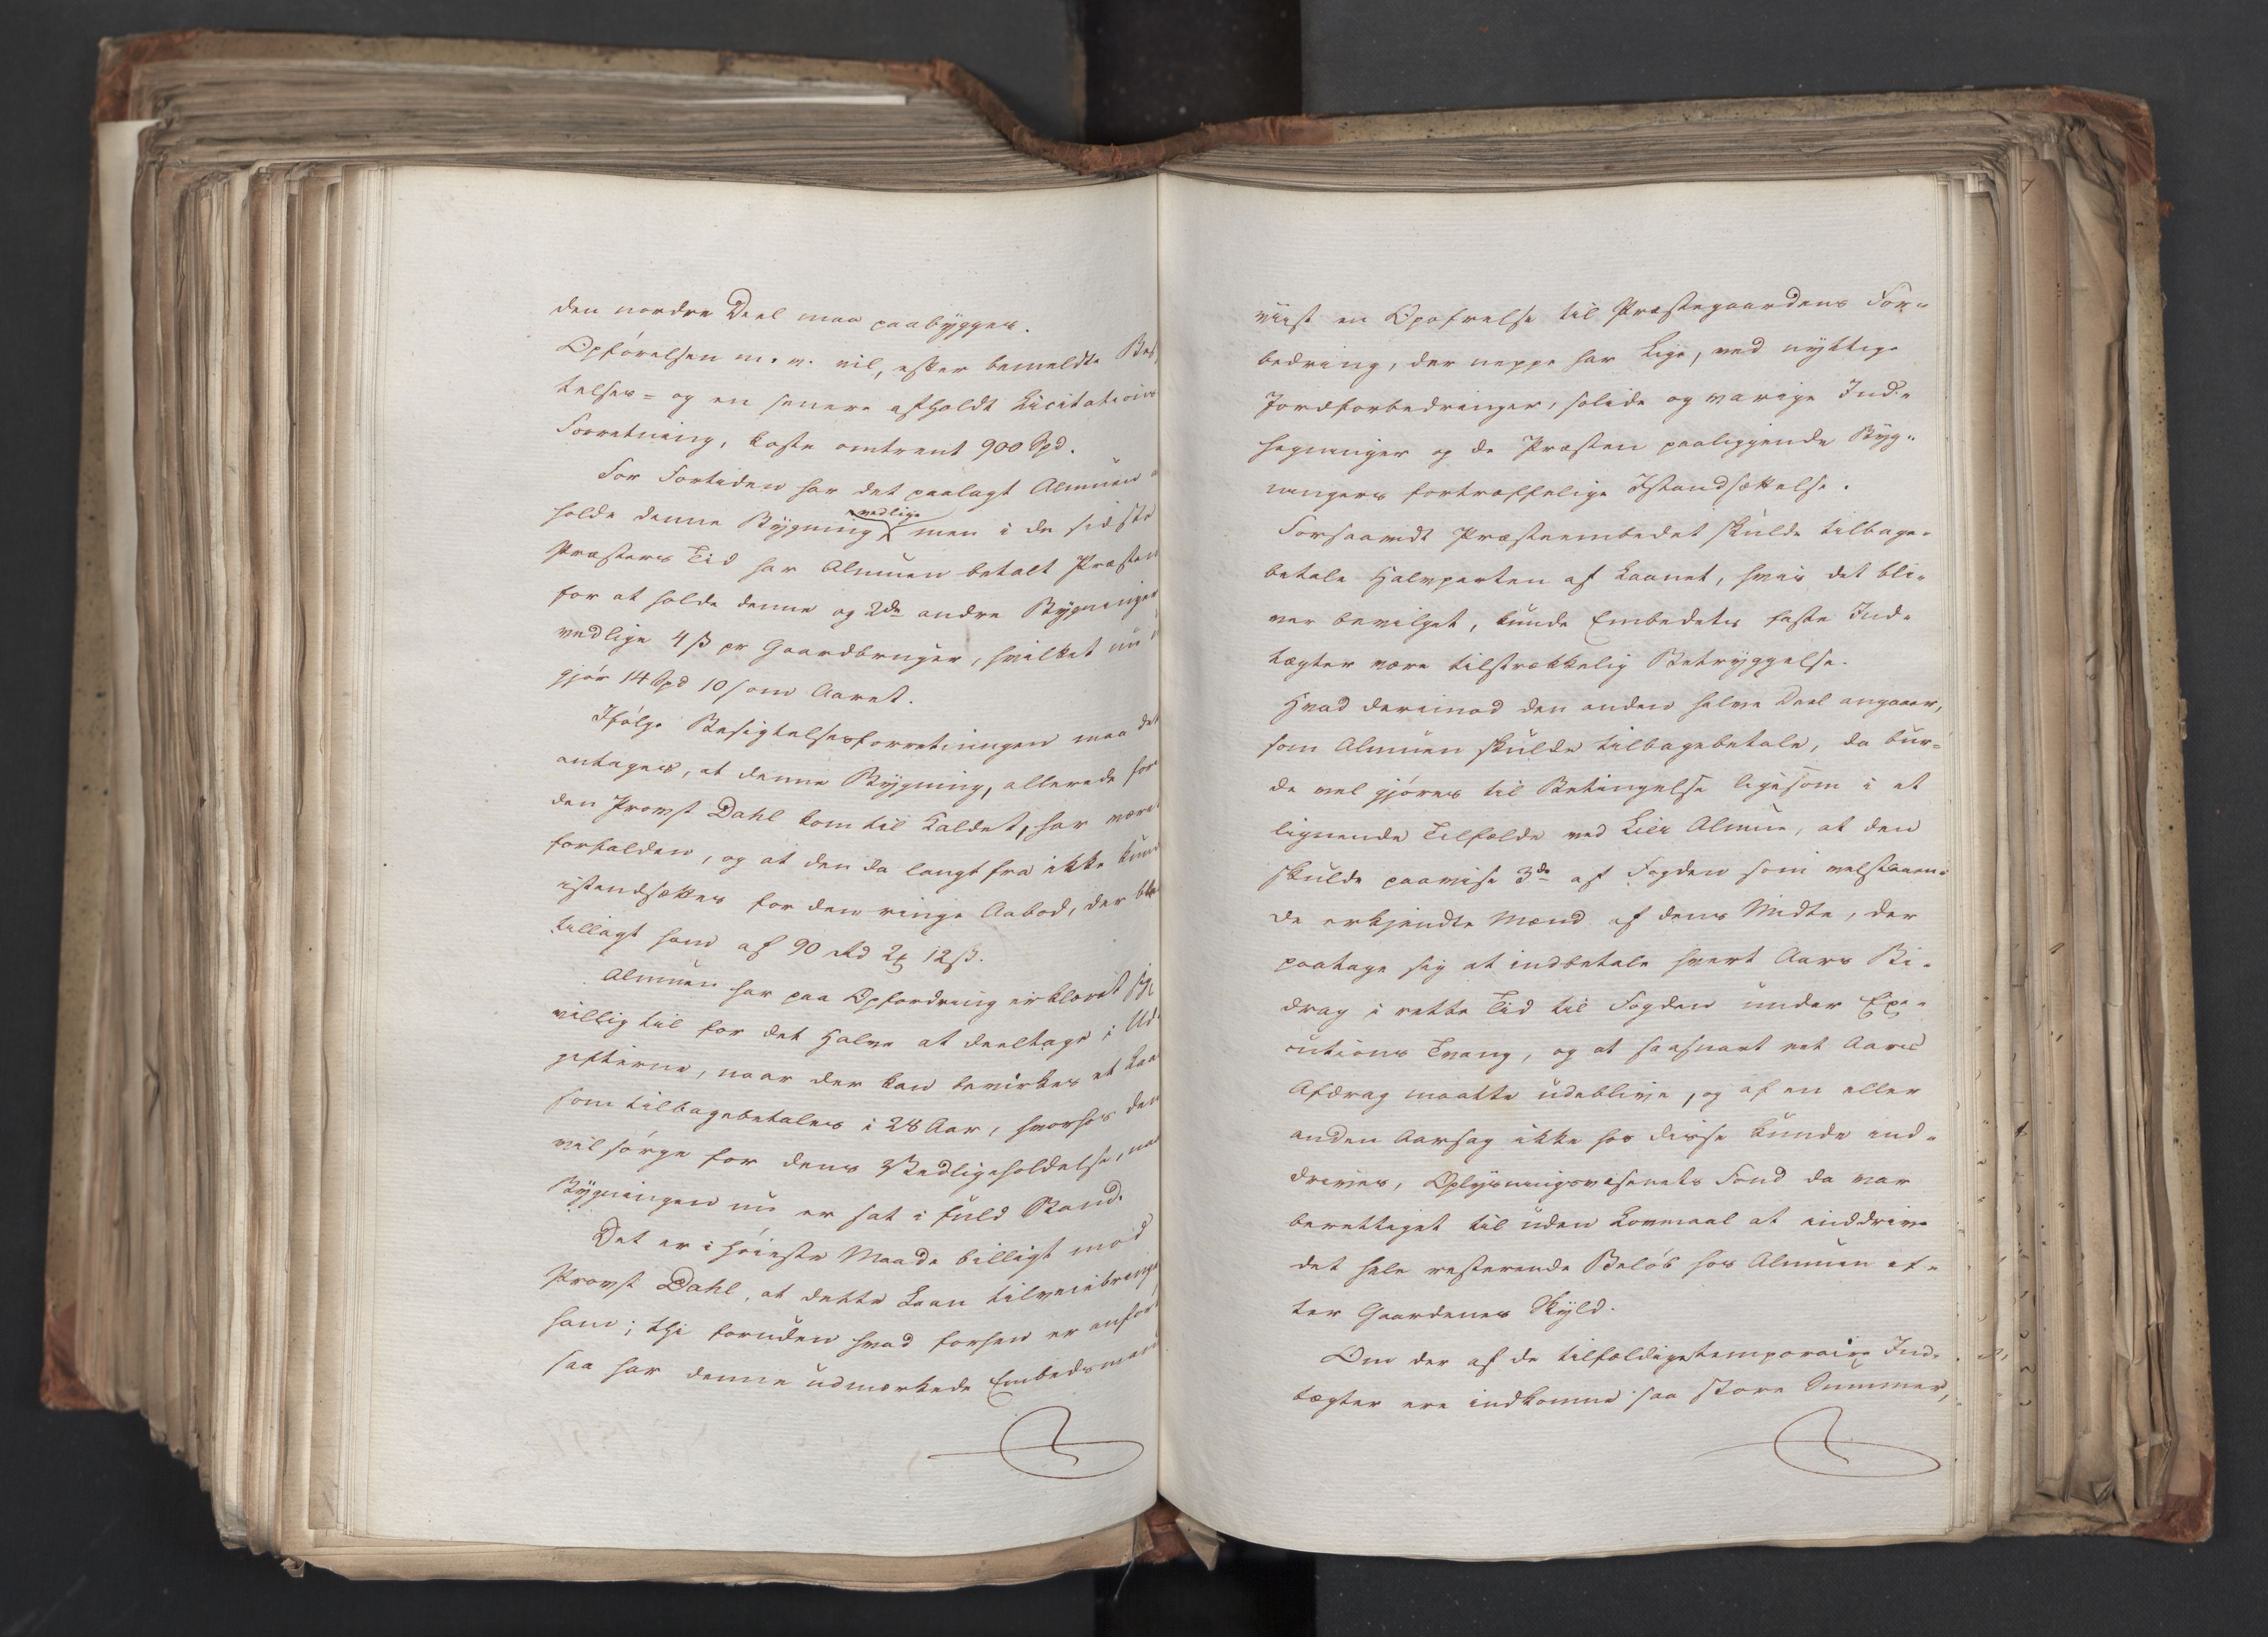 den nordre Deel maa paabygges.
Opførelsen m. v. vil, efter bemeldte Bes
telses- og en senere afholdt Licitations
Forretning, koste omtrent 900 Spd.
For Fortiden har det paalagt Almuen a
holde denne Bygning vedlige men i de sidste
Præsters Tid har Almuen betalt Præsten
for at holde denne og 2de andre Bygninger
vedlige 4 ß pr Gaardbruger, hvilket nu
gjør 14 Spd 10 ß om Aaret.
Ifølge Besigtelsesforretningen maa det
antages, at denne Bygning, allerede før
den Provst Dahl kom til Kaldet, har været
forfalden, og at den da langt fra ikke kun
istandsættes for den ringe Aabod, der ble
tillagt ham af 90 Rd 2 ⅟ 12 ß.
Almuen har paa Opfordring erklæret sig
villig til for det Halve at deeltage i Ud
gifterne, naar der kan bevirkes et Laa
som tilbagebetales i 28 Aar, hvorhos den
vil sørge for dens Vedligeholdelse, na
Bygningen nu er sat i fuld Stand.
Det er i høieste Maade billigt mod
Provst Dahl, at dette Laan tilveiebringe
ham; thi foruden hvad forhen er anfør
saa har denne udmærkede Embedsman
viist en Opofrelse til Præstegaardens For-
bedring, der neppe har Lige, ved nyttige
Jordforbedringer, solide og varige Ind-
hegninger og de Præsten paaliggende Byg-
ningers fortræffelige Istandsættelse.
Forsaavidt Præsteembedet skulde tilbage-
betale Halvparten af Laanet, hvis det bli-
ver bevilget, kunde Embedets faste Ind-
tægter være tilstrækkelig Betryggelse.
Hvad derimod den anden halve Deel angaaer,
som Almuen skulde tilbagebetale, da bur-
de vel gjøres til Betingelse ligesom i et
lignende Tilfælde ved Lier Almue, at den
skulde paavise 3de af Fogden som velstaaen-
de erkjendte Mænd af dens Midte, der
paatage sig at indbetale hvert Aars Bi-
drag i rette Tid til Fogden under Exe-
cutions Tvang, og at saasnart eet Aars
Afdrag maatte udeblive, og af en eller
anden Aarsag ikke hos disse kunde ind-
drives, Oplysningsvæsenets Fond da var
berettiget til uden Lovmaal at inddrive
det hele resterende Beløb hos Almuen ef-
ter Gaardenes Skyld.
Om der af de tilfældige temporaire Ind-
tægter ere indkomne saa store Summer,